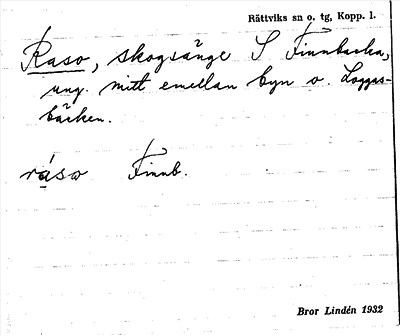 Rättviks sn o. tg, Kopp. l.
Raso, skogsänge S Finnbacka,
ung. mitt emellan byn o. Loggas-
bäcken.
råso Finnb.
Bror Lindén 1932